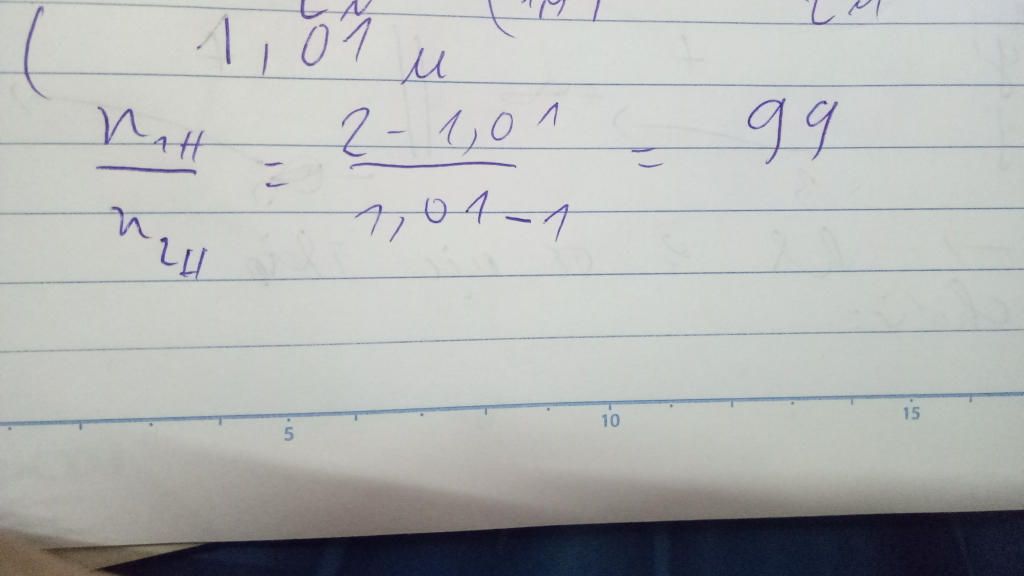 ( 1,01 u
n1H / n2H = 2 - 1,01 / 1,01 - 1 = 99
5 10 15